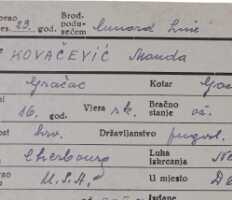 res. 29. god. Brod. podu- Cunard Line
zećem
KOVAČEVIĆ Manda
Gračac Kotar
16. god. Vjera r.k. Bračno
stanje
ost hrv. Državljanstvo jugosl.
Cherbourg Luka
Iskrcanja
U.S.A. U mjesto